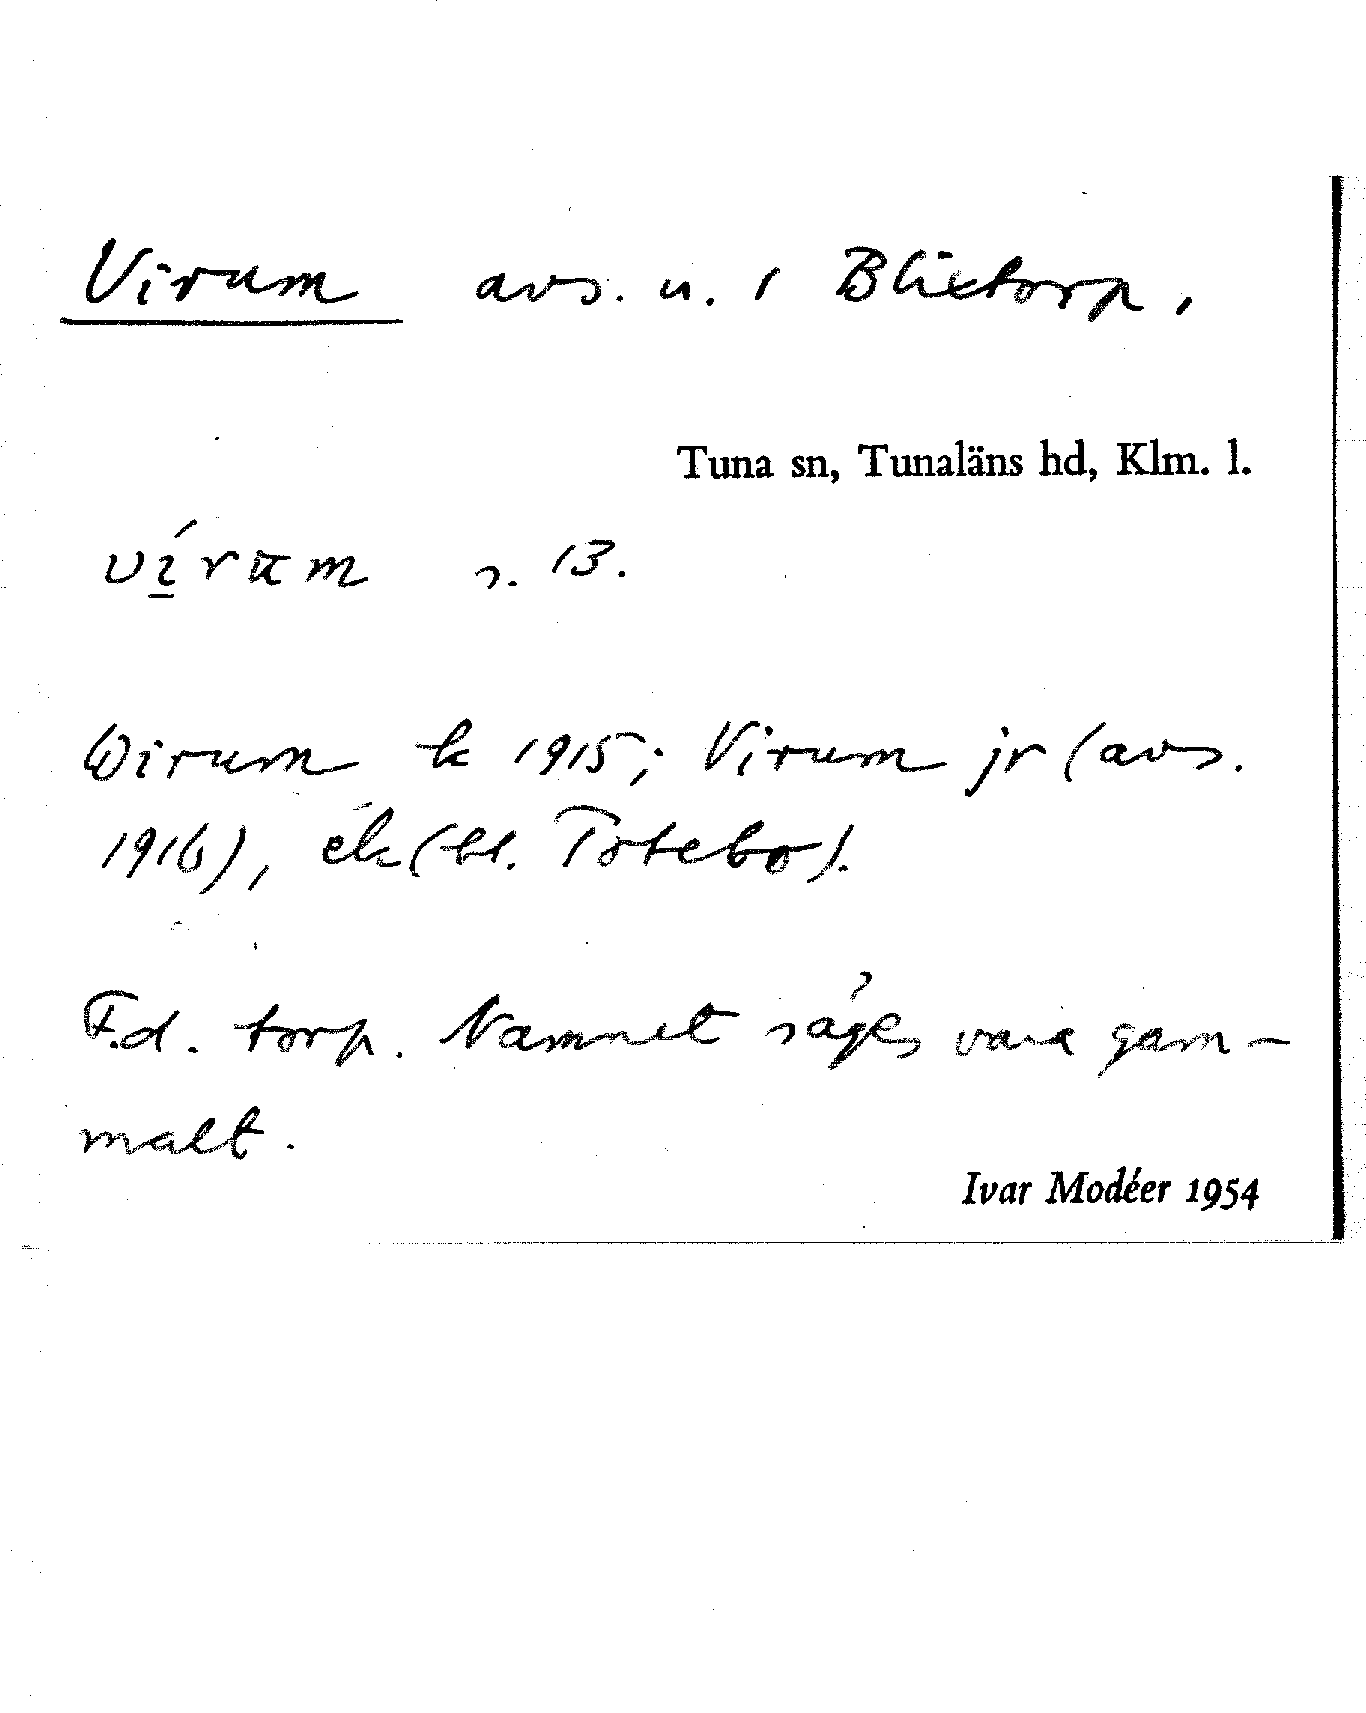 Virum avs. u. 1 Blixtorp,
Tuna sn, Tunaläns hd, Klm. l.
vírum s. 13.
Wirum k 1915; Virum jr (avs.
1916), ek (bl. Totebo).
F.d. torp. Namnet säges vara gam-
malt.
Ivar Modéer 1954